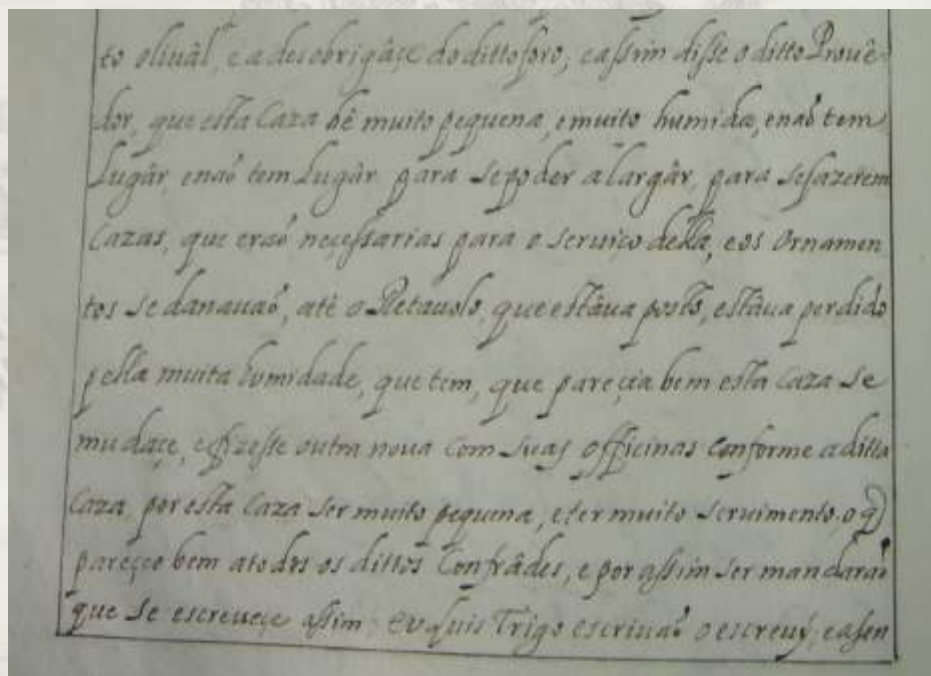 to oliuâl, e a desobrigâçe do ditto foro, e assim disse o ditto Prouê-
dor, que esta Caza hê muito pequena, e muito humida, e naõ tem
Lugâr, e naõ tem Lugâr para se poder alargâr, para se fazerem
Cazas, que eraõ neçessarias para o seruiço della, e os Ornamen
tos se danauaõ, atê o Retauolo, que estâua posto, estâua perdido
pella muita humidade, que tem, que pareçia bem esta Caza se
mudaçe, e fizeste outra noua Com suas officinas Conforme a ditta
Caza, por esta Caza ser muito pequena, e ter muito seruimento, o q̃
pareçeo bem a todos os dittos Confrâdes, e por assim ser mandaraõ
que se escreueçe assim; eu Luis Trigo escriuaõ o escreuÿ, e assen